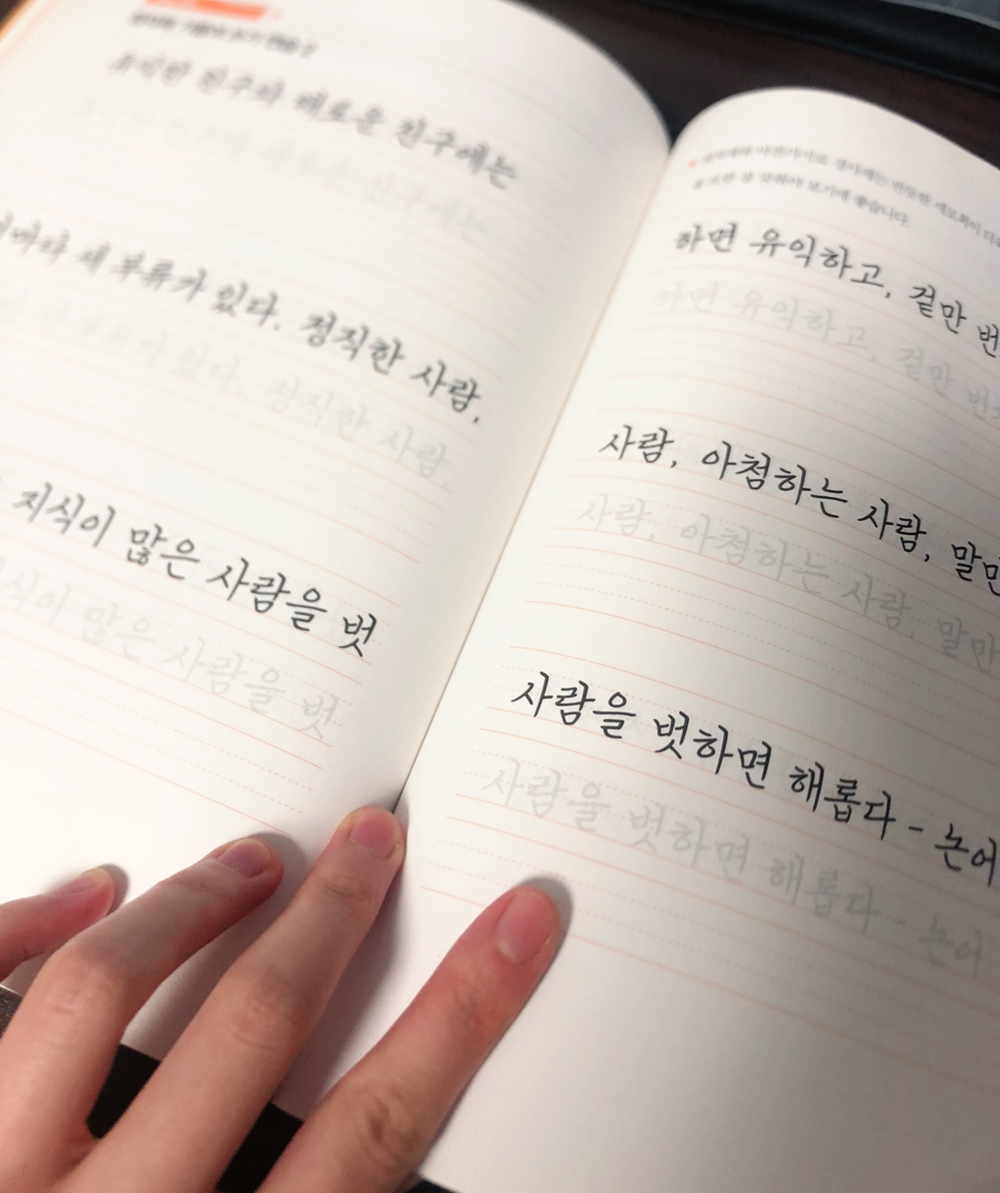 유익한 친구와 해로운 친구에는
유익한 친구와 해로운 친구에는
세 부류가 있다. 정직한 사람,
세 부류가 있다. 정직한 사람,
지식이 많은 사람을 벗
지식이 많은 사람을 벗
보기에 좋습니다.
하면 유익하고, 겉만 번
하면 유익하고, 겉만 번
사람, 아첨하는 사람, 말만
사람, 아첨하는 사람, 말만
사람을 벗하면 해롭다 - 논어
사람을 벗하면 해롭다 - 논어